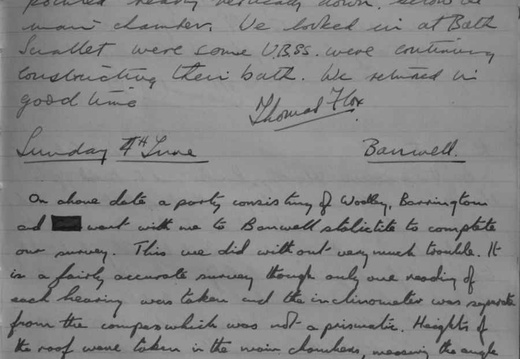 main chamber. We looked in at Bath
Swallet were some U.B.S.s. were continuing
constructing their bath. We returned in
good time
Thomas Flox.
Sunday 4TH June Banwell.
On above date a party consisting of Woolley, Barrington
ad went with me to Banwell stalictite to complete
our survey. This we did without very much trouble. It
is a fairly accurate survey though only one reading of
each bearing was taken and the inclinometer was separate
from the compass which was not a prismatic. Heights of
the roof were taken in the main chambers, measuring the angle